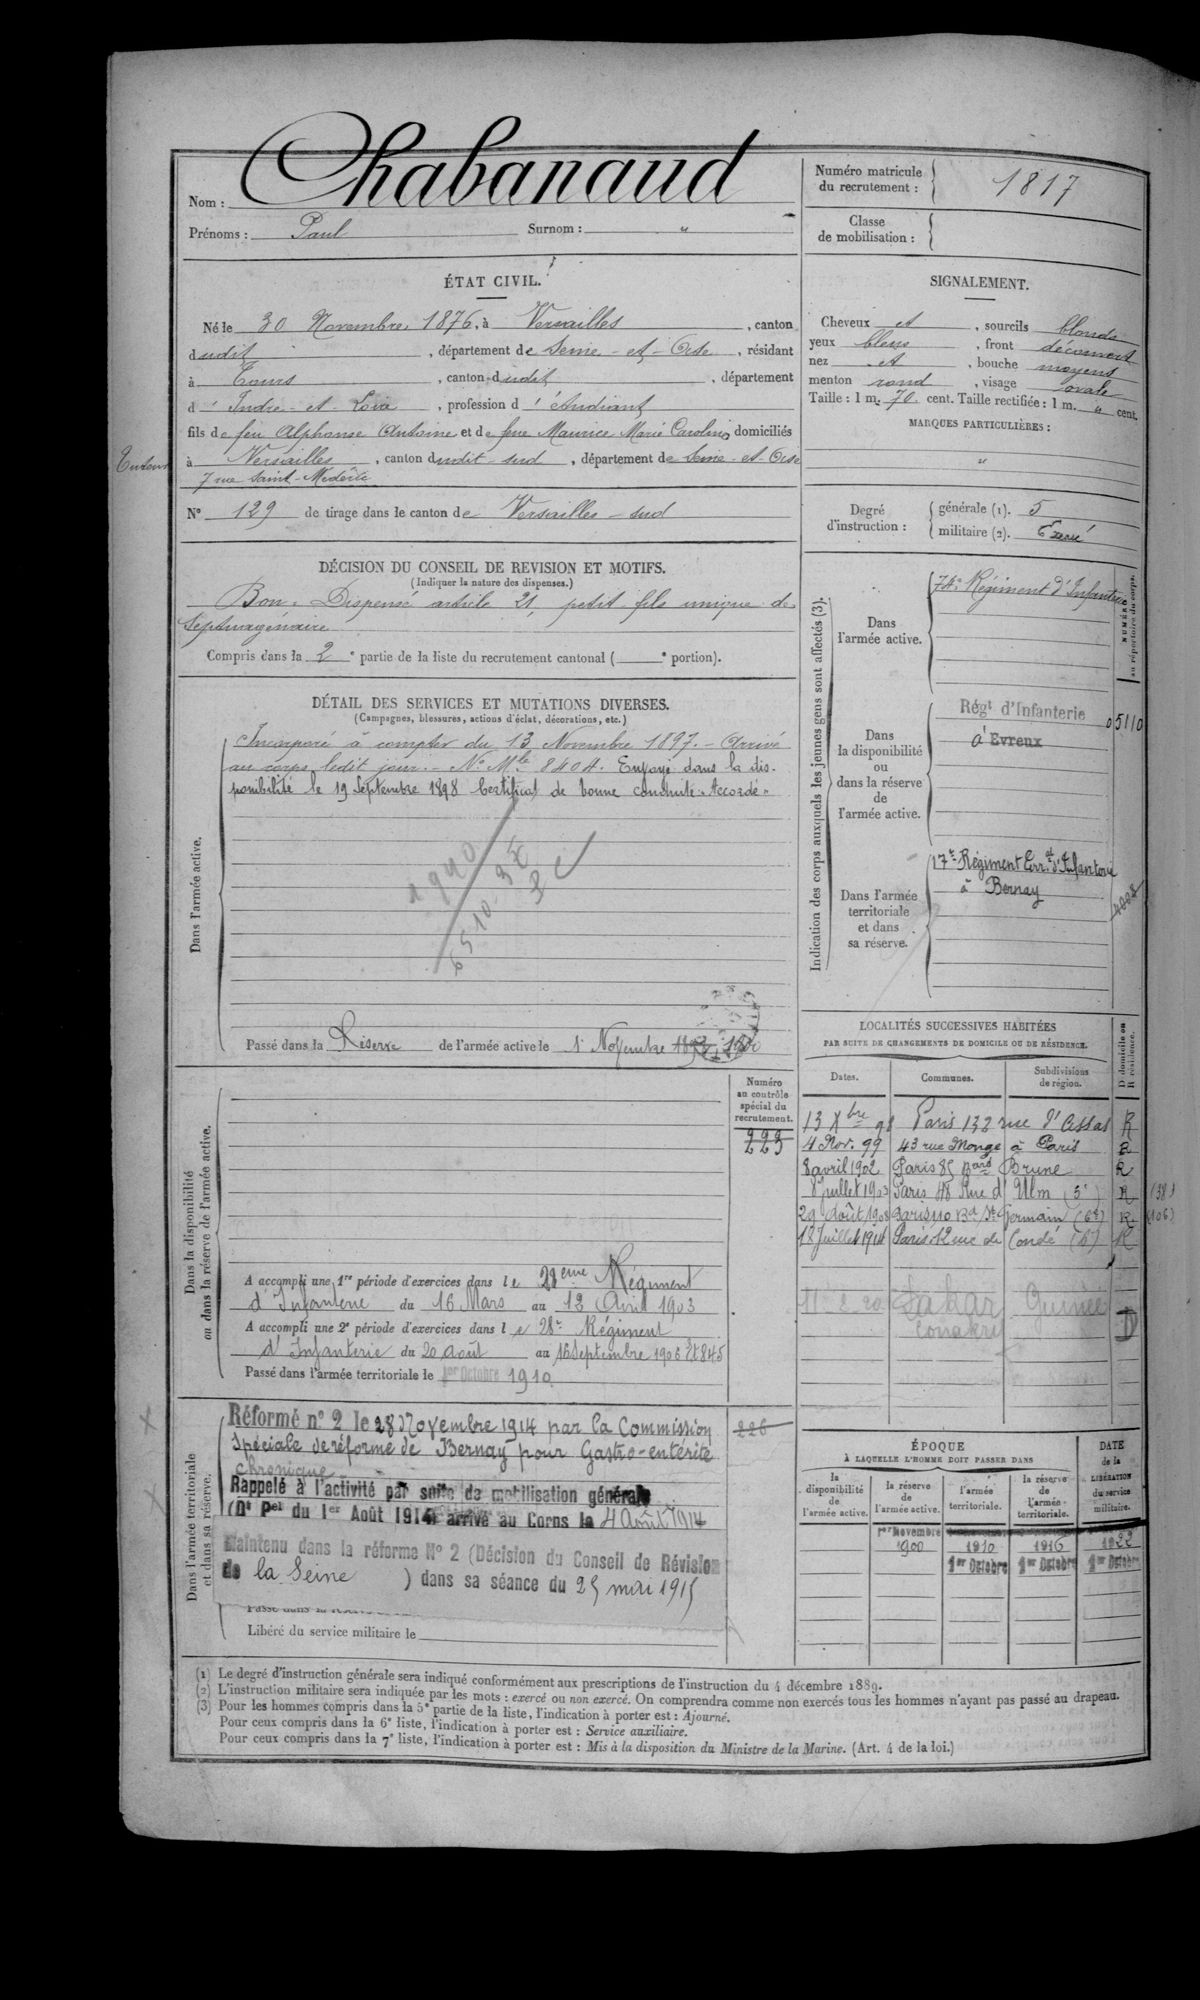 Nom : Chabanaud
Prénoms : Paul Surnom : "
Numéro matricule du recrutement : 1817
Classe de mobilisation :
ÉTAT CIVIL.
Né le 30 Novembre 1876, à Versailles, canton
dudit, département de Seine-et-Oise, résidant
à Tours, canton dudit, département
d'Indre-et-Loire, profession d'étudiant
fils de feu Alphonse Antoine et de feue Maurice Marie Caroline domiciliés
à Versailles, canton dudit-sud, département de Seine-et-Oise
7 rue Saint-Médéric
N° 129 de tirage dans le canton de Versailles-sud
SIGNALEMENT.
Cheveux et, sourcils blonds
yeux bleus, front découvert
nez et, bouche moyens
menton rond, visage ovale
Taille : 1 m. 70 cent. Taille rectifiée : 1 m. " cent.
MARQUES PARTICULIÈRES :
"
Degré d'instruction :
générale (1). 5
militaire (2). Exercé
DÉCISION DU CONSEIL DE REVISION ET MOTIFS.
(Indiquer la nature des dispenses.)
Bon. Dispensé article 21, petit-fils unique de
septuagénaire
Compris dans la 2e partie de la liste du recrutement cantonal ( e portion).
DÉTAIL DES SERVICES ET MUTATIONS DIVERSES.
(Campagnes, blessures, actions d'éclat, décorations, etc.)
Dans l'armée active.
Incorporé à compter du 13 Novembre 1897. - Arrivé
au corps ledit jour. - N° Mle 8404. Envoyé dans la dis-
ponibilité le 19 Septembre 1898 Certificat de bonne conduite "Accordé"
Passé dans la Réserve de l'armée active le 1er Novembre 1900
Indication des corps auxquels les jeunes gens sont affectés (3).
NUMÉRO au répertoire du corps.
Dans l'armée active.
74e Régiment d'Infanterie
Dans la disponibilité ou dans la réserve de l'armée active.
Régt d'Infanterie 05110
à Evreux
Dans l'armée territoriale et dans sa réserve.
17e Régiment Terr.al d'Infanterie
à Bernay
4008
LOCALITÉS SUCCESSIVES HABITÉES
PAR SUITE DE CHANGEMENTS DE DOMICILE OU DE RÉSIDENCE.
D domicile ou R résidence.
Dates. Communes. Subdivisions de région.
13 Xbre 98 Paris 132 rue d'Assas R
4 Nov. 99 43 rue Monge à Paris R
8 avril 1902 Paris 85 Bard Brune R
8 Juillet 1903 Paris 48 Rue d'Ulm (5e) R
29 Août 1908 Paris 110 Bd St Germain (6e) R
18 Juillet 1914 Paris 12 rue de Condé (6e) R
Dakar Guinée D
Conakry
Dans la disponibilité ou dans la réserve de l'armée active.
Numéro au contrôle spécial du recrutement.
223
A accompli une 1re période d'exercices dans le 28eme Régiment
d'Infanterie du 16 Mars au 12 Avril 1903
A accompli une 2e période d'exercices dans le 28e Régiment
d'Infanterie du 20 août au 16 Septembre 1906
Passé dans l'armée territoriale le 1er Octobre 1910
Dans l'armée territoriale et dans sa réserve.
Réformé n° 2 le 28 Novembre 1914 par la Commission
Spéciale de réforme de Bernay pour Gastro-entérite
chronique
226
Rappelé à l'activité par suite de mobilisation générale
(Dt Pel du 1er Août 1914) arrivé au Corps le 4 Août 1914
Maintenu dans la réforme N° 2 (Décision du Conseil de Révision
de la Seine) dans sa séance du 25 mai 1915
Libéré du service militaire le
ÉPOQUE
À LAQUELLE L'HOMME DOIT PASSER DANS
DATE de la LIBÉRATION du service militaire.
la disponibilité de l'armée active. la réserve de l'armée active. l'armée territoriale. la réserve de l'armée territoriale.
1er Novembre
1900 1910 1916 1922
1er Octobre 1er Octobre 1er Octobre
(1) Le degré d'instruction générale sera indiqué conformément aux prescriptions de l'instruction du 4 décembre 1889.
(2) L'instruction militaire sera indiquée par les mots : exercé ou non exercé. On comprendra comme non exercés tous les hommes n'ayant pas passé au drapeau.
(3) Pour les hommes compris dans la 5e partie de la liste, l'indication à porter est : Ajourné.
Pour ceux compris dans la 6e liste, l'indication à porter est : Service auxiliaire.
Pour ceux compris dans la 7e liste, l'indication à porter est : Mis à la disposition du Ministre de la Marine. (Art. 4 de la loi.)